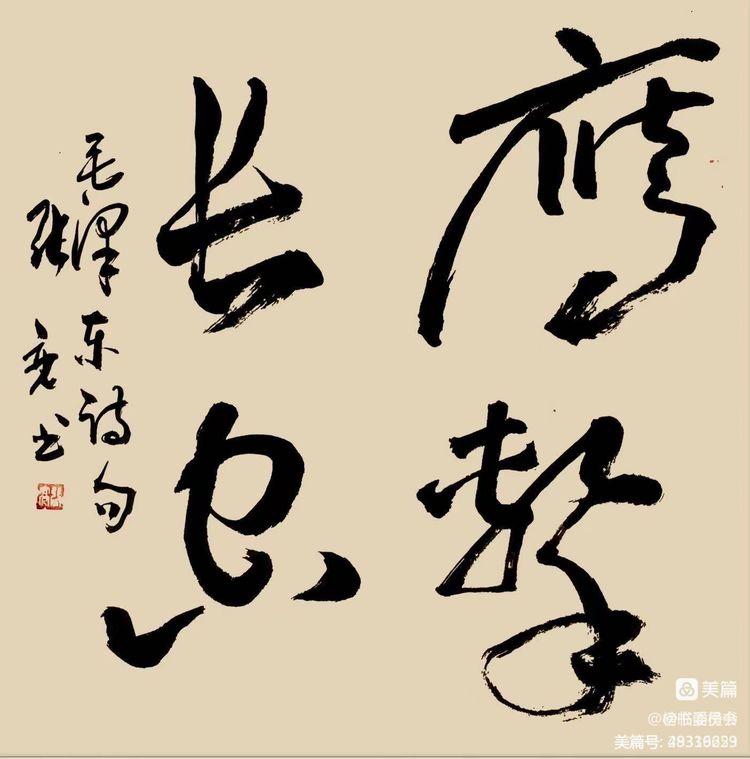 鹰击
长空
毛泽东诗句
张亮书
美篇
美篇号: